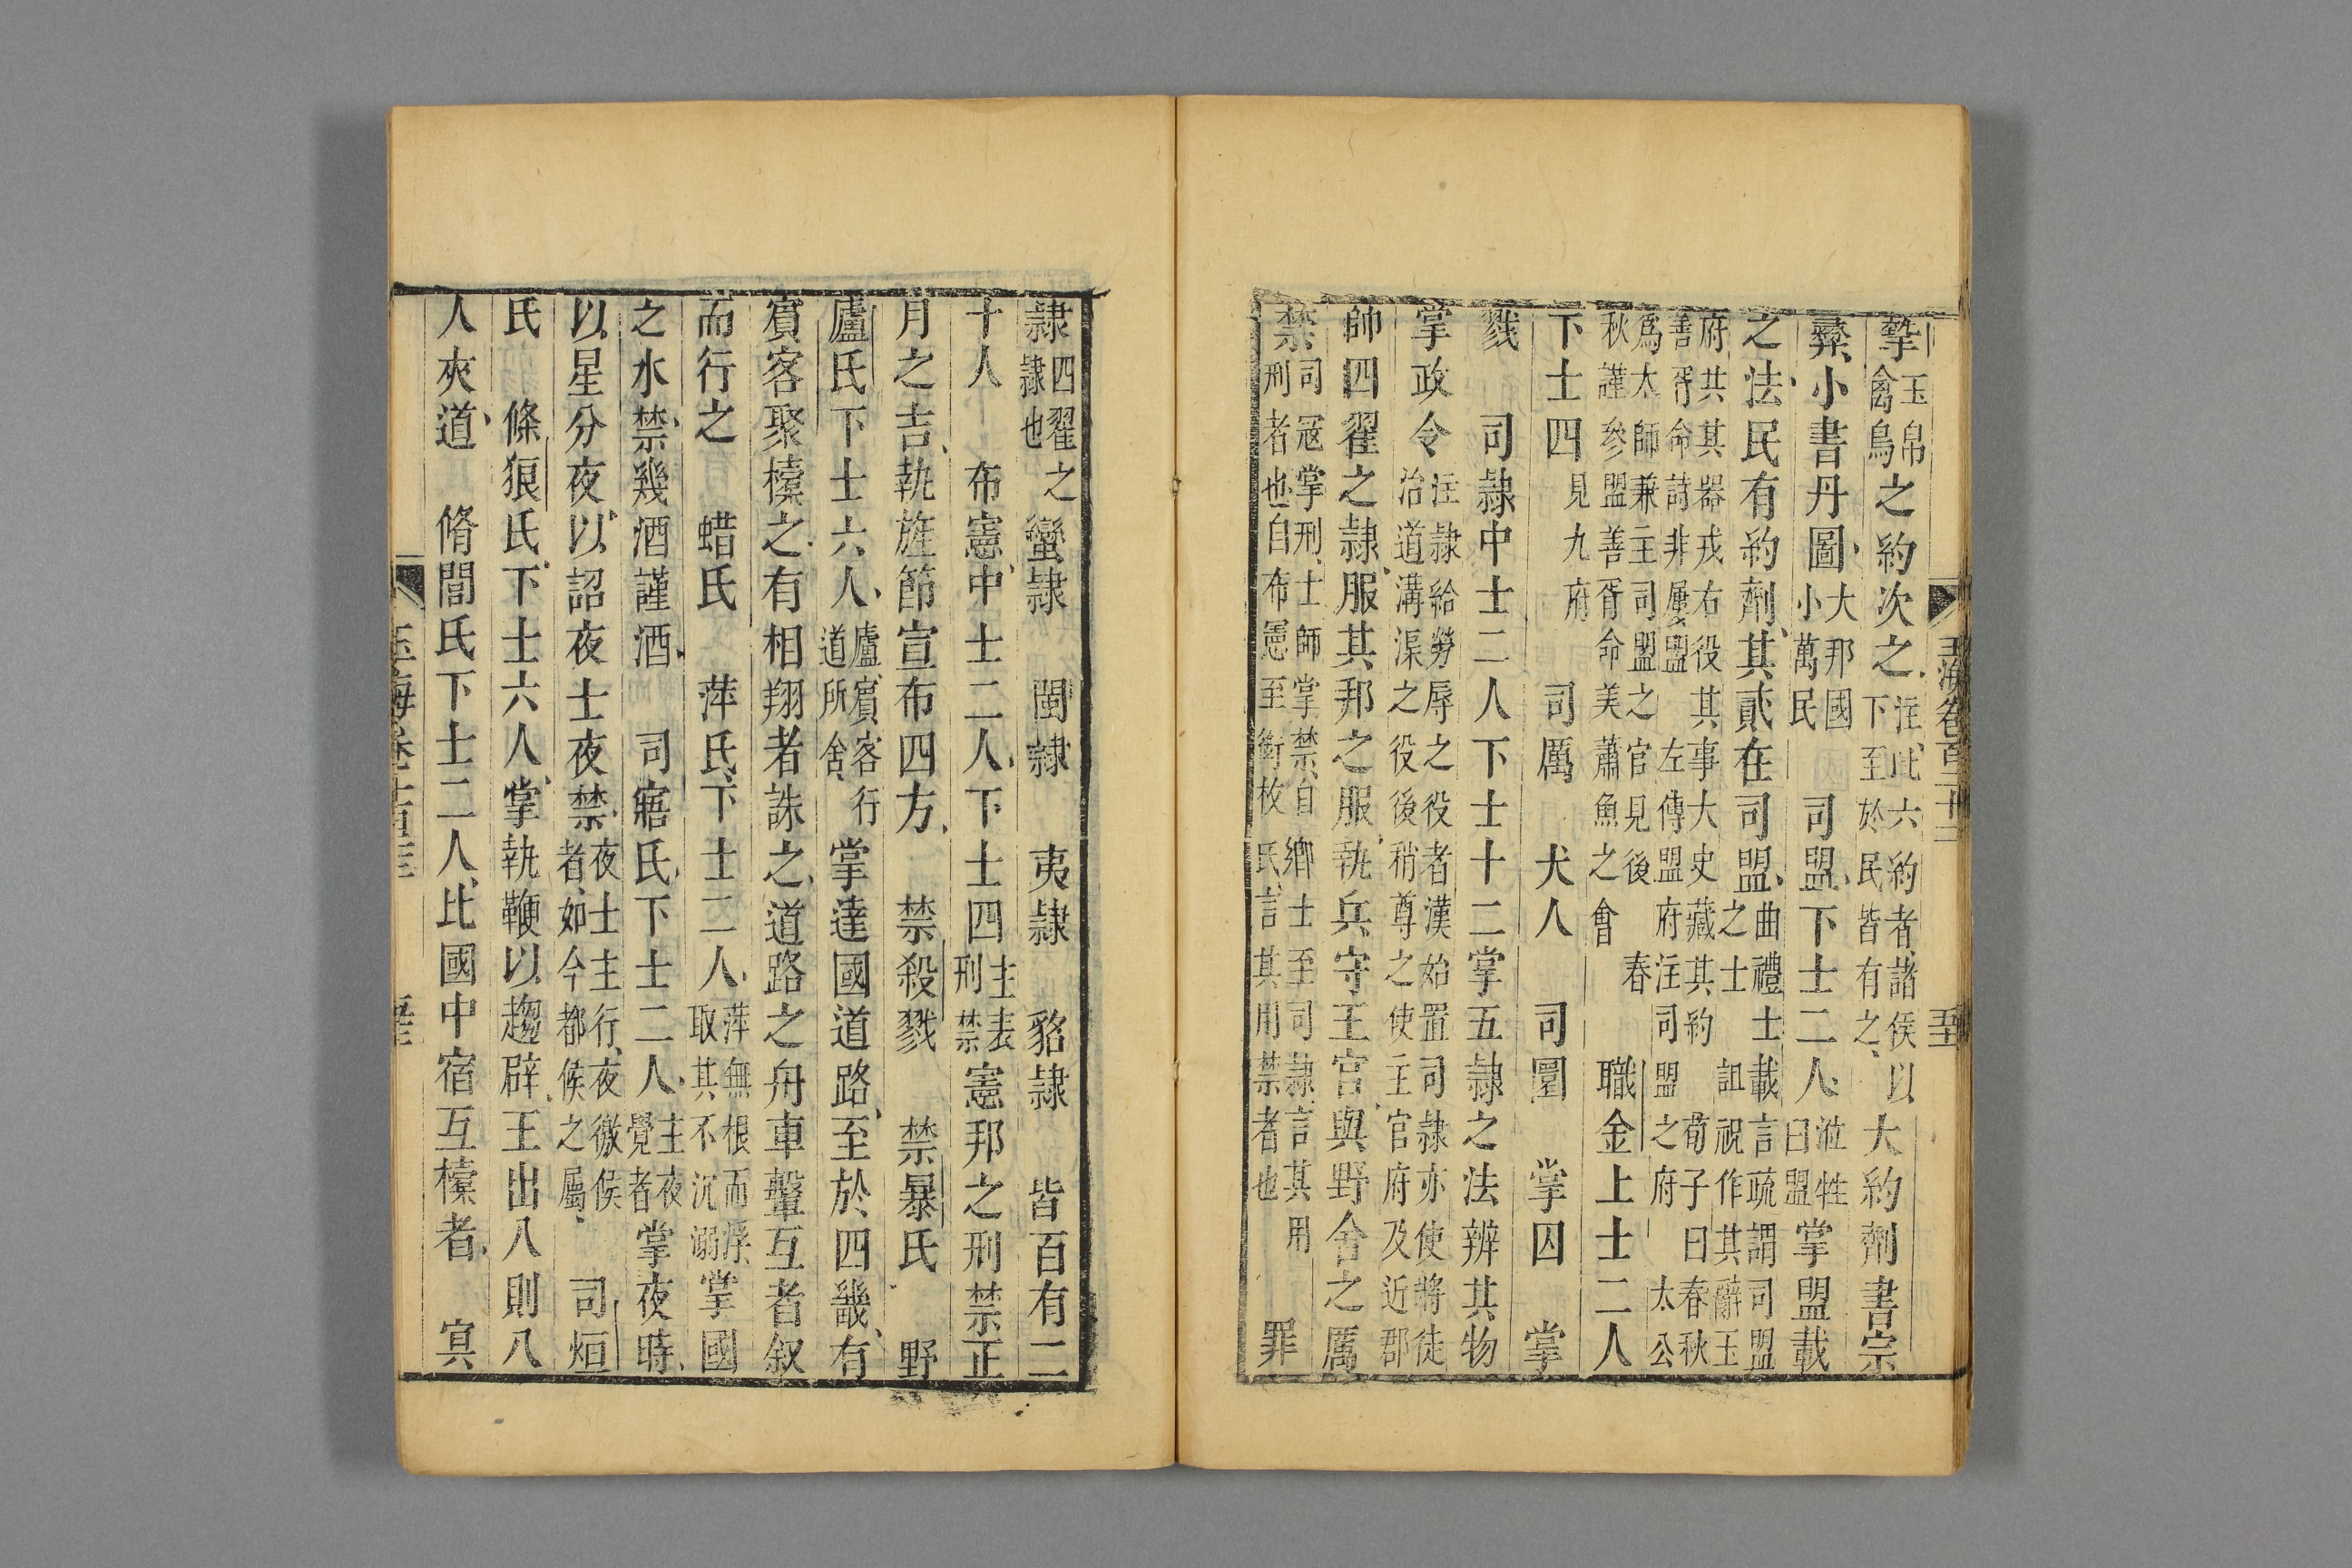 玉海卷百二十二
摯玉帛禽鳥之約次之注此六約者諸侯以下至於民皆有之大約劑書宗
彛小書丹圖大邦國小萬民　司盟下士二人涖牲曰盟掌盟載
之法民有約劑其貳在司盟曲禮士載言疏謂司盟之士詛祝作其辭玉
府共其器戎右役其事大史藏其約荀子曰春秋善胥命詩非屢盟左傳盟府注司盟之府太公
爲太師兼主司盟之官見後春秋謹參盟善胥命美蕭魚之會　職金上士二人
下士四見九府　司厲　犬人　司圜　掌囚　掌
戮　司隷中士二人下士十二掌五隷之法辨其物
掌政令注隷給勞辱之役者漢始置司隷亦使將徒治道溝渠之役後稍尊之使主官府及近郡
帥四翟之隷服其邦之服執兵守王宫與野舍之厲
禁司寇掌刑士師掌禁自鄉士至司隷言其用刑者也自布憲至銜枚氏言其用禁者也　罪
隷四翟之隷也蠻隷　閩隷　夷隷　貉隷　皆百有二
十人　布憲中士二人下士四主表刑禁憲邦之刑禁正
月之吉執旌節宣布四方　禁殺戮　禁暴氏　野
廬氏下士六人廬賓客行道所舍掌達國道路至於四畿有
賓客聚㯓之有相翔者誅之道路之舟車轚互者叙
而行之　蜡氏　萍氏下士二人萍無根而浮取其不沉溺掌國
之水禁幾酒謹酒　司寤氏下士二人主夜覺者掌夜時
以星分夜以詔夜士夜禁夜士主行夜徼候者如今都候之屬　司烜
氏　條狼氏下士六人掌執鞭以趨辟王出入則八
人夾道　脩閭氏下士二人比國中宿互㯓者　冥